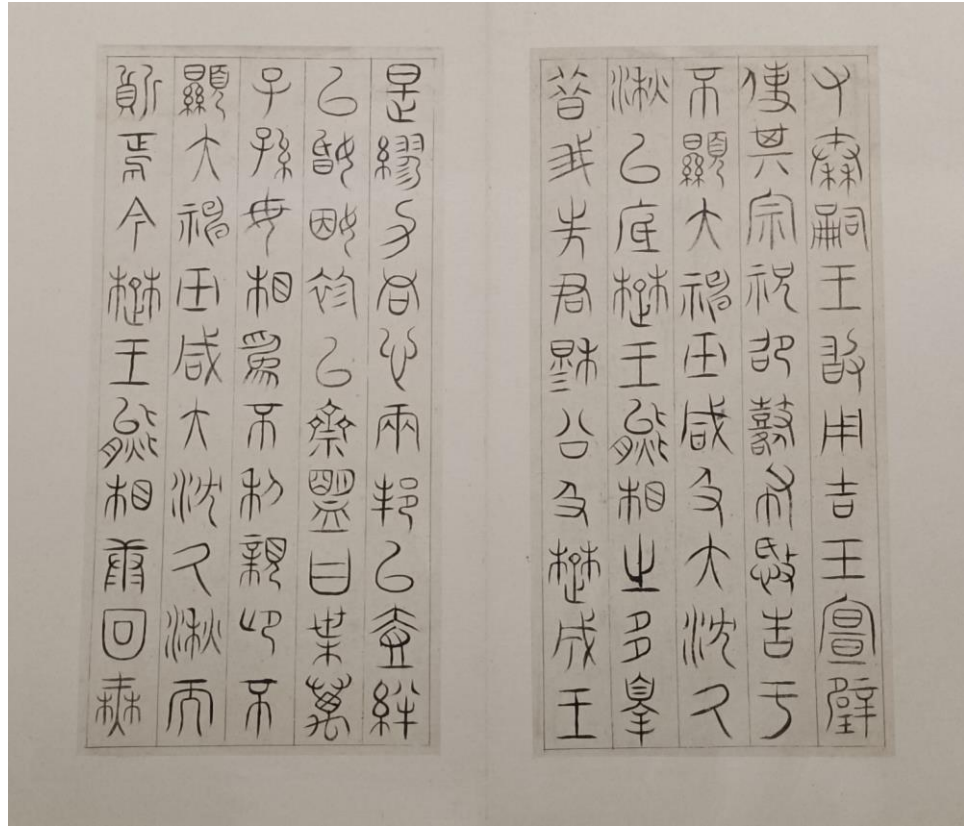 又秦嗣王敢用吉玉宣璧
使其宗祝邵鼛布憝告于
不顯大神巫咸及大沈久
湫以底楚王熊相之多辠
昔我先君穆公及楚成王
是繆力同心兩邦以壹絆
以婚姻袗以齋盟曰枼萬
子孫毋相為不利親卬不
顯大神巫咸大沈久湫而
質焉今楚王熊相康回無